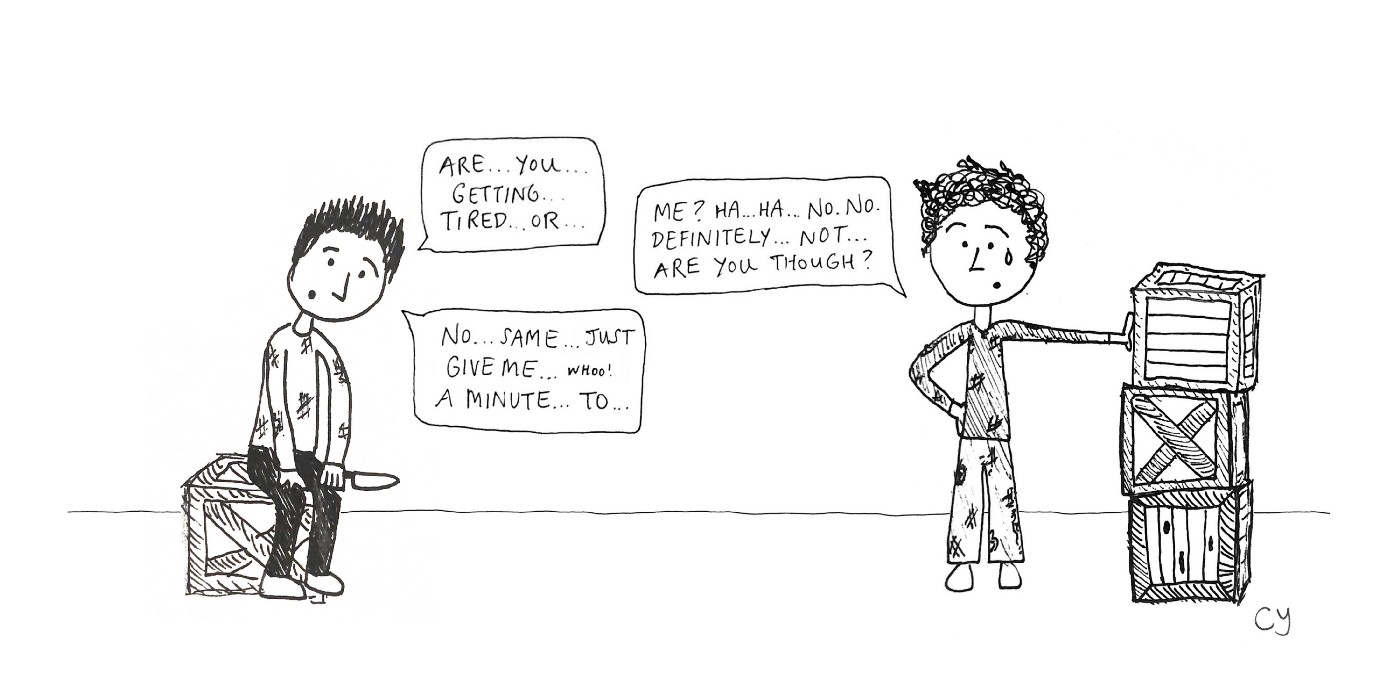 ARE... YOU...
GETTING...
TIRED... OR...
ME? HA...HA... NO. NO.
DEFINITELY... NOT...
ARE YOU THOUGH?
NO... SAME... JUST
GIVE ME... WHOO!
A MINUTE... TO...
CY